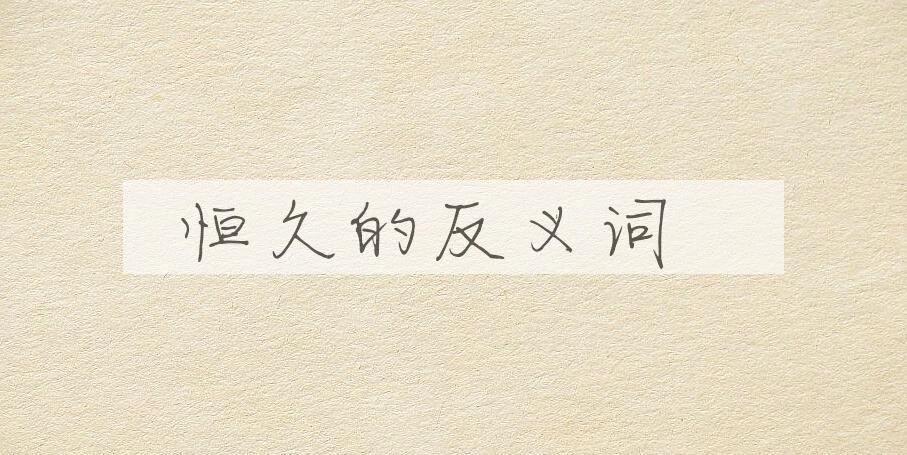 恒久的反义词